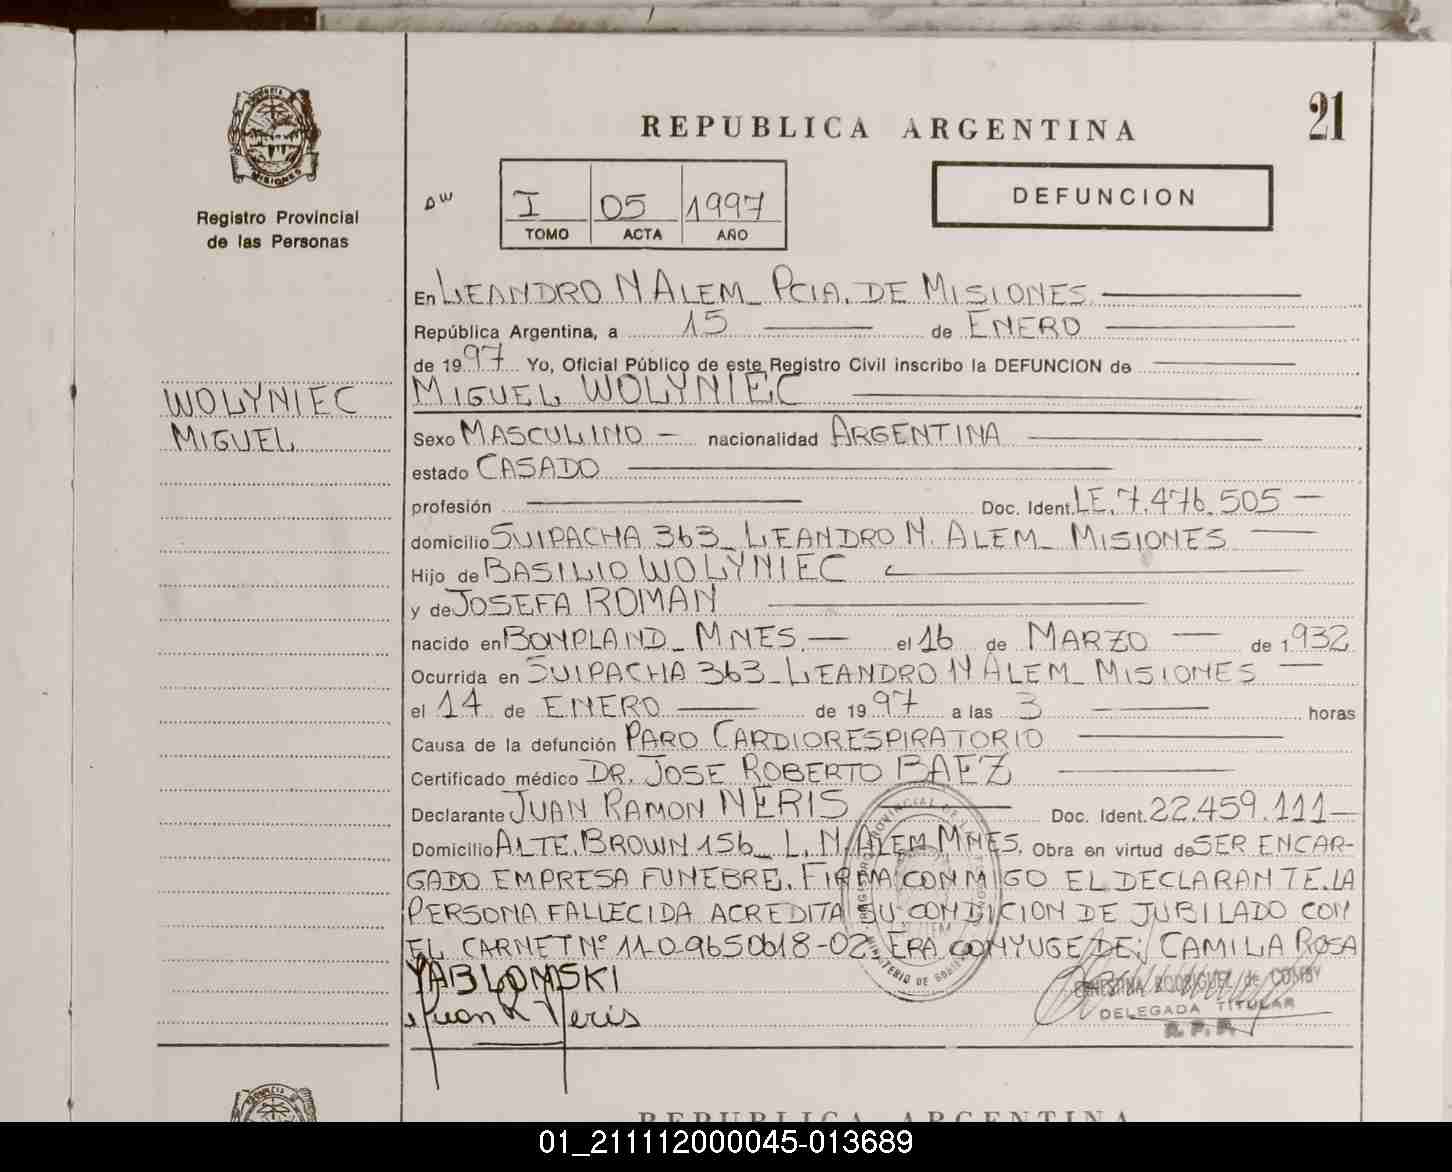 21
REPUBLICA ARGENTINA
PROVINCIA
MISIONES
Registro Provincial
de las Personas
I 05 1997
TOMO ACTA AÑO
DEFUNCION
En LEANDRO N ALEM_ PCIA. DE MISIONES
República Argentina, a 15 de ENERO
de 1997 Yo, Oficial Público de este Registro Civil inscribo la DEFUNCION de
MIGUEL WOLYNIEC
WOLYNIEC
MIGUEL
Sexo MASCULINO — nacionalidad ARGENTINA
estado CASADO
profesión Doc. Ident. LE. 7.476.505 —
domicilio SUIPACHA 363_ LEANDRO N. ALEM_ MISIONES
Hijo de BASILIO WOLYNIEC
y de JOSEFA ROMAN
nacido en BONPLAND_ MNES. — el 16 de MARZO — de 1932
Ocurrida en SUIPACHA 363_ LEANDRO N ALEM_ MISIONES
el 14 de ENERO de 1997 a las 3 horas
Causa de la defunción PARO CARDIORESPIRATORIO
Certificado médico DR. JOSE ROBERTO BAEZ
Declarante JUAN RAMON NERIS Doc. Ident. 22.459.111—
Domicilio ALTE. BROWN 156_ L. N. ALEM MNES. Obra en virtud de SER ENCAR-
GADO EMPRESA FUNEBRE. FIRMA CONMIGO EL DECLARANTE. LA
PERSONA FALLECIDA ACREDITA SU CONDICION DE JUBILADO CON
EL CARNET Nº 11-0-9650618-02. ERA CONYUGE DE: CAMILA ROSA
YABLONSKI
Juan R Neris
RODRIGUEZ de
DELEGADA TITULAR
R. P. P.
REPUBLICA ARGENTINA
01_211112000045-013689